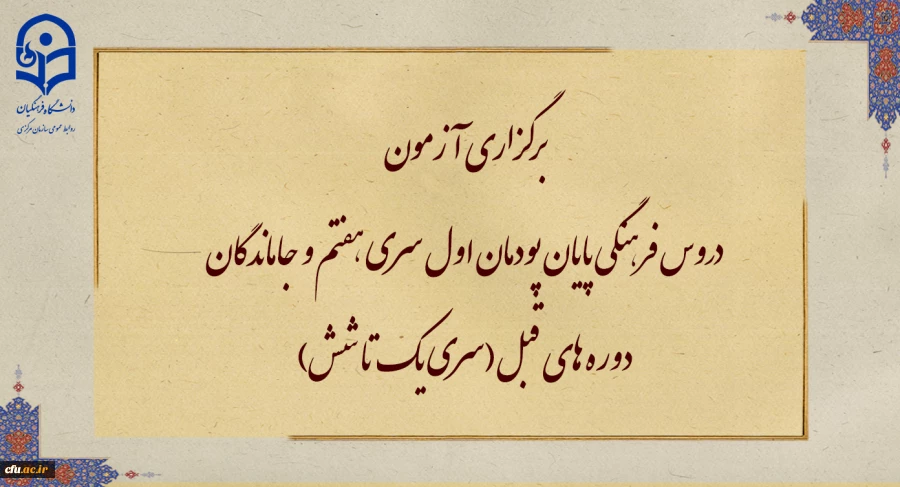 دانشگاه فرهنگیان
روابط عمومی سازمان مرکزی
برگزاری آزمون
دروس فرهنگی پایان پودمان اول سری هفتم و جاماندگان
دوره های قبل (سری یک تا شش)
cfu.ac.ir